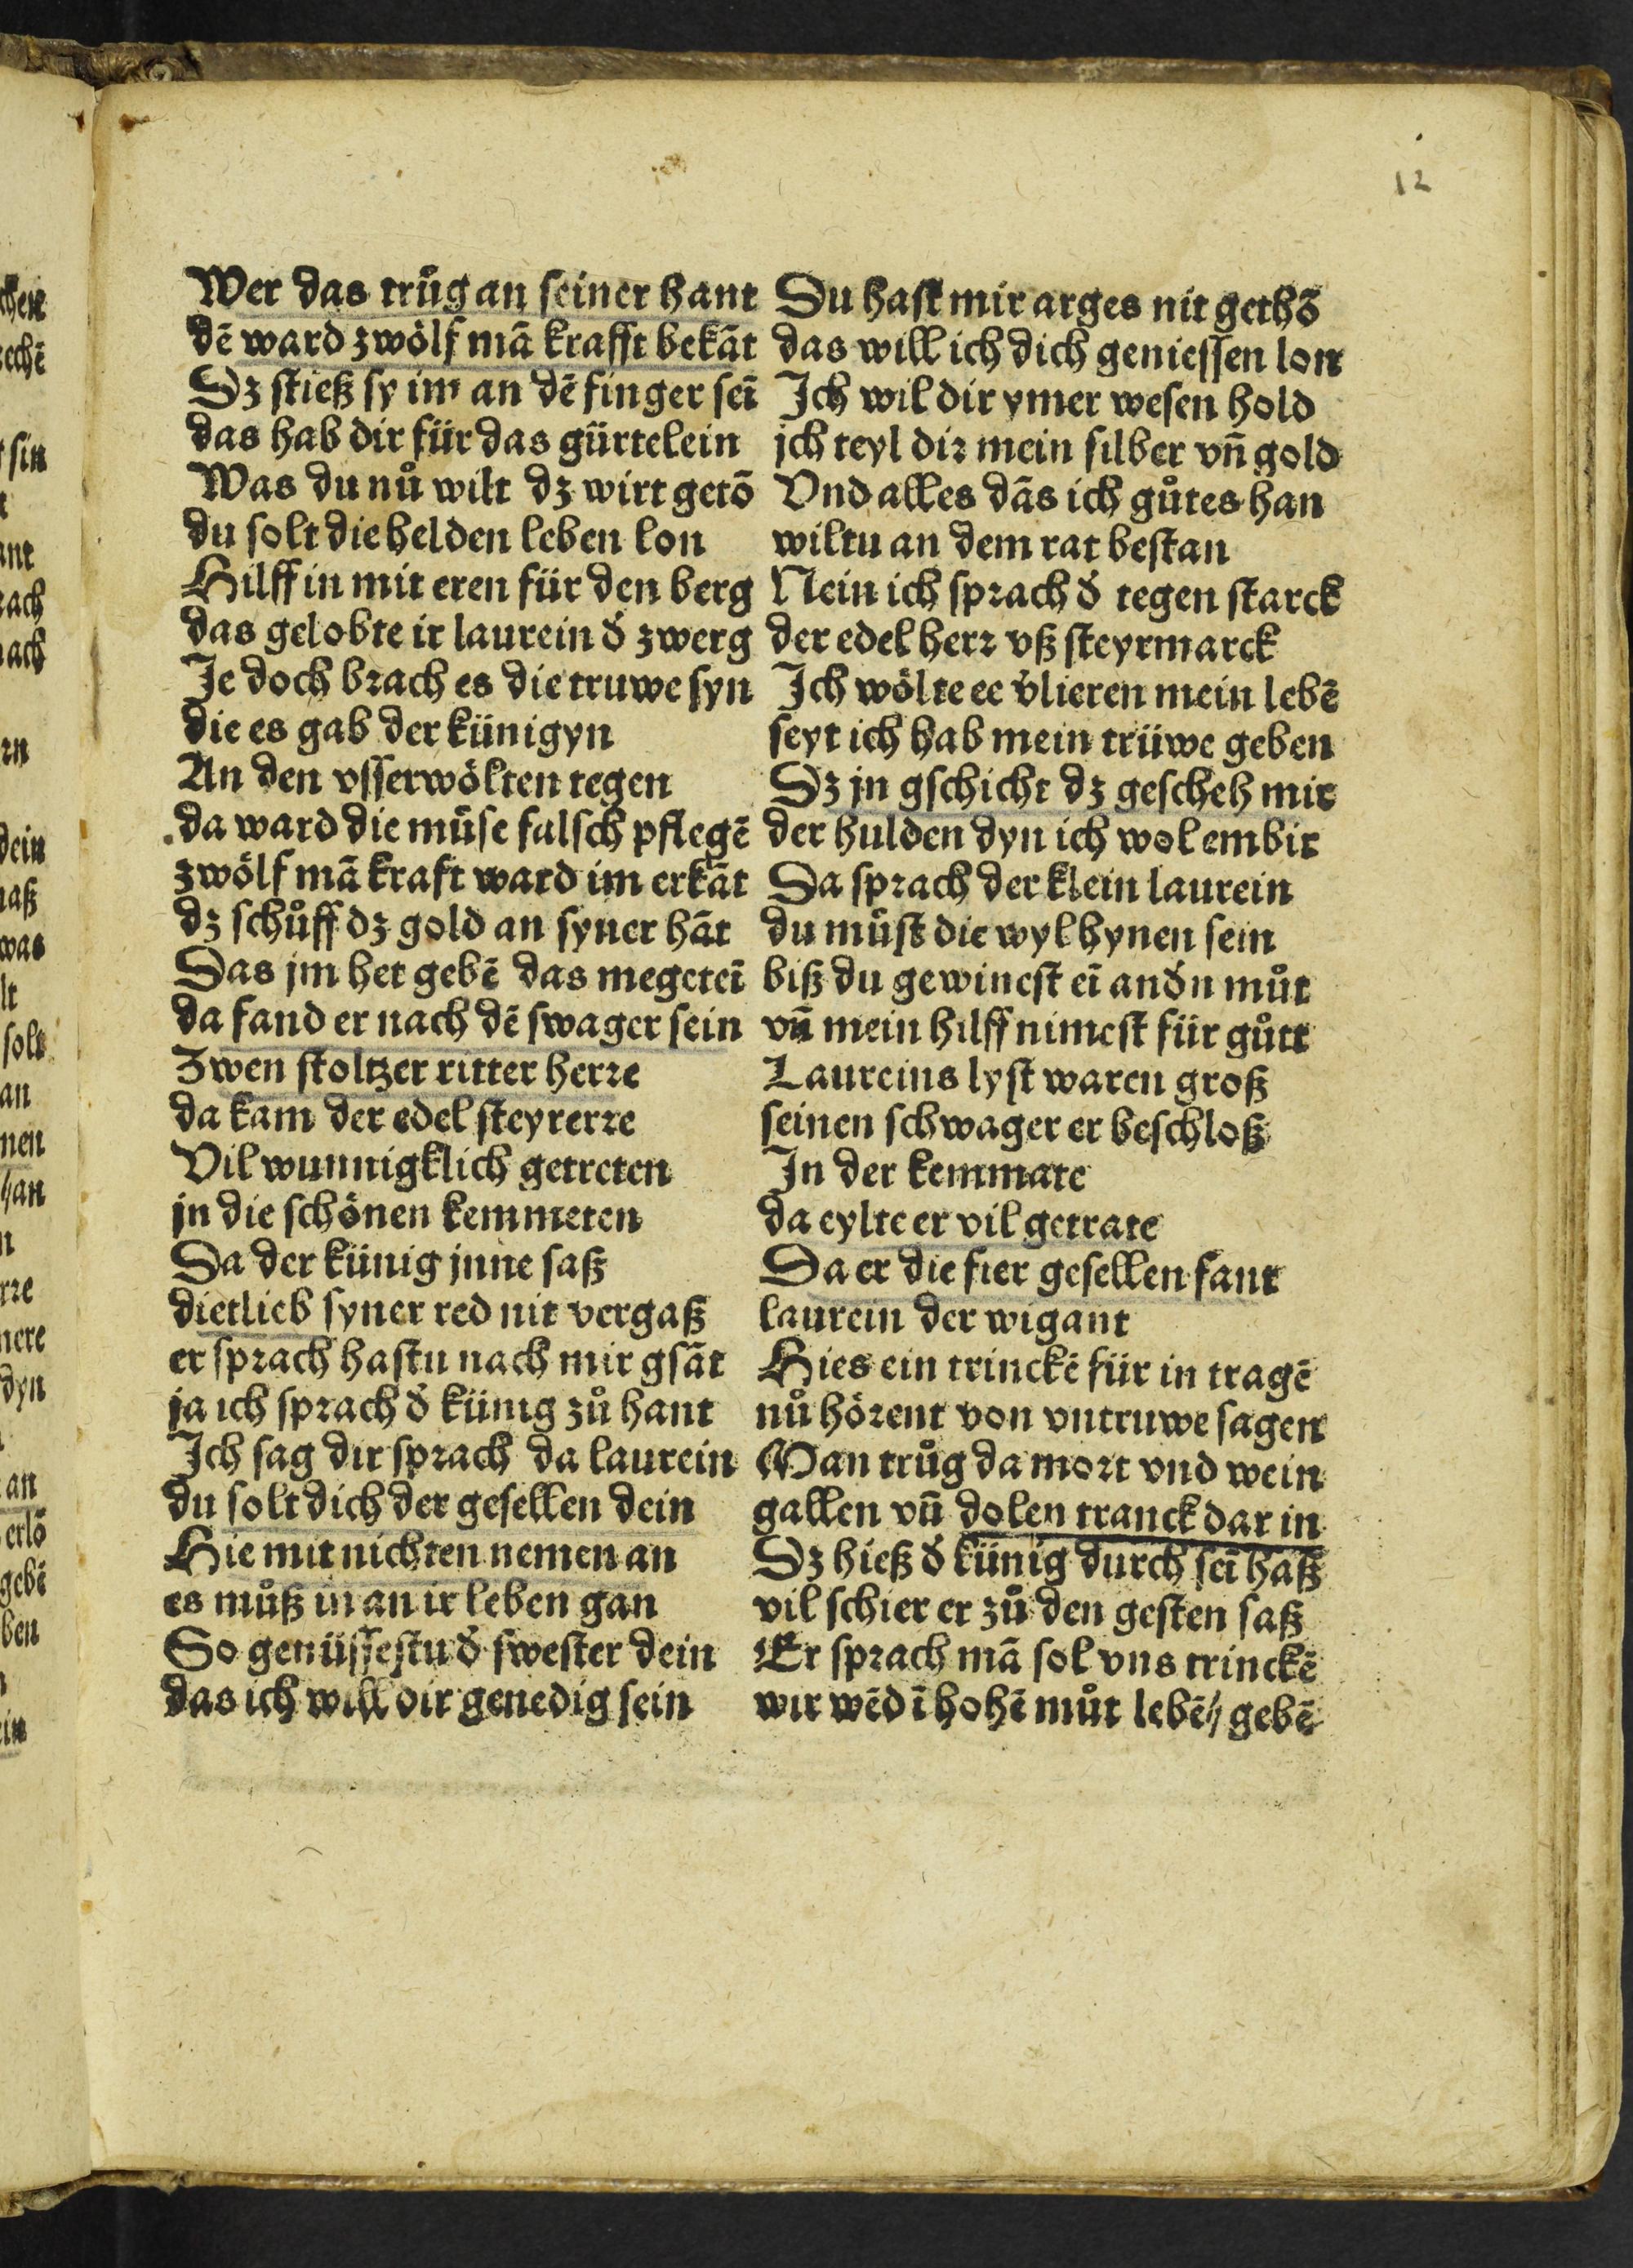 12
Wer das trůg an seiner hant
dē ward zwölf mā krafft bekāt
Dz stieß sy im an dē finger seī
das hab dir für das gürtelein
Was du nů wilt dz wirt getō
du solt die helden leben lon
Hilff in mit eren für den berg
das gelobte ir laurein d̕ zwerg
Je doch brach es die truwe syn
die es gab der künigyn
An den vsserwölten tegen
da ward die müse falsch pflegē
zwölf mā kraft ward im erkāt
dz schůff dz gold an syner hāt
Das jm het gebē das megeteī
da fand er nach dē swager sein
Zwen stoltzer ritter herre
da kam der edel steyrerre
Vil wunnigklich getreten
jn die schönen kemmeten
Da der künig jnne saß
dietlieb syner red nit vergaß
er sprach hastu nach mir gsāt
ja ich sprach d̕ künig zů hant
Ich sag dir sprach da laurein
du solt dich der gesellen dein
Hie mit nichten nemen an
es můß in an ir leben gan
So genüssestu d̕ swester dein
das ich will dir genedig sein
Du hast mir arges nit gethō
das will ich dich geniessen lon
Ich wil dir ymer wesen hold
ich teyl dir mein silber vn̄ gold
Vnd alles dās ich gůtes han
wiltu an dem rat bestan
Nein ich sprach d̕ tegen starck
der edel herr vß steyrmarck
Ich wölte ee v̕lieren mein lebē
seyt ich hab mein trüwe geben
Dz jn gschicht dz gescheh mir
der hulden dyn ich wol embir
Da sprach der klein laurein
du můst die wyl hynen sein
biß du gewinest eī and̕n můt
vn̄ mein hilff nimest für gůtt
Laureins lyst waren groß
seinen schwager er beschloß
In der kemmate
da eylte er vil getrate
Da er die fier gesellen fant
laurein der wigant
Hies ein trinckē für in tragē
nů hörent von vntruwe sagen
Man trůg da mort vnd wein
gallen vn̄ dolen tranck dar in
Dz hieß d̕ künig durch seī haß
vil schier er zů den gesten saß
Er sprach mā sol vns trinckē
wir wēd ī hohē můt lebē // gebē